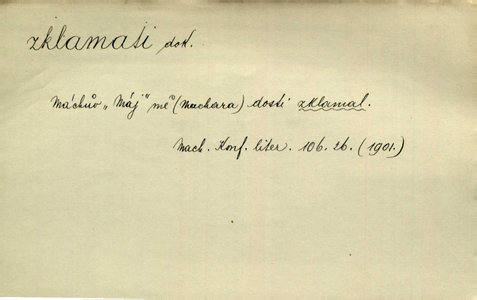 zklamati dok.
Máchův „Máj" mě (Machara) dosti zklamal.
Mach. Konf. liter. 106. 26. (1901.)